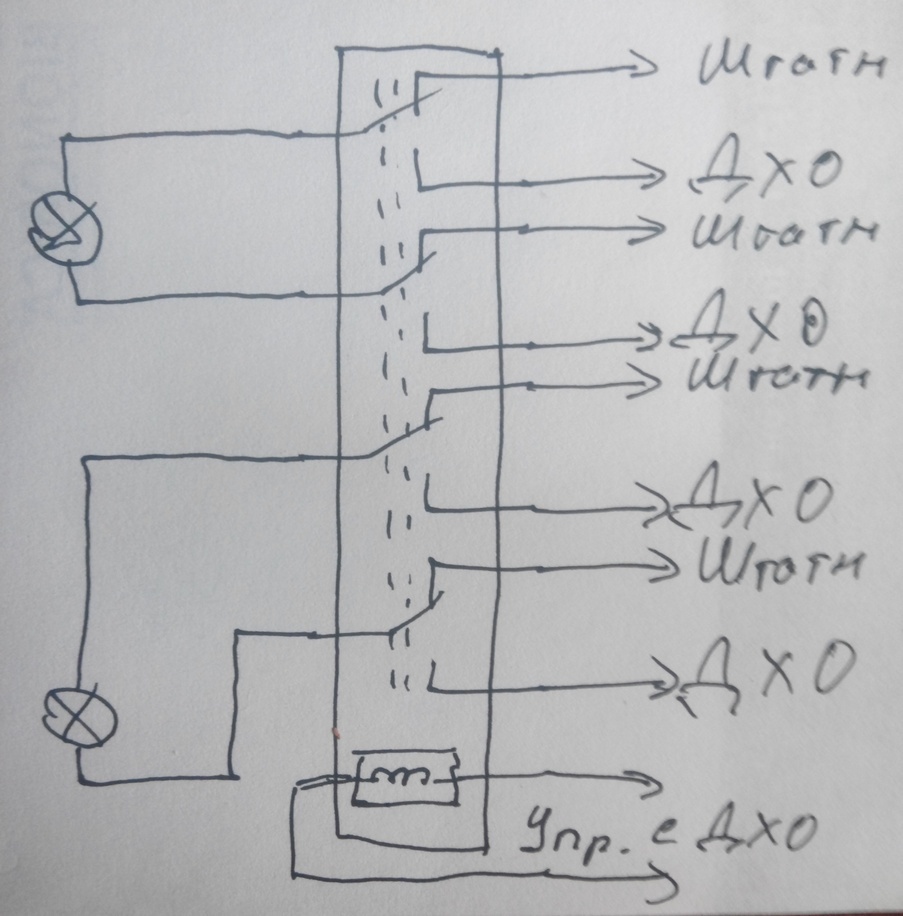 Штатн
ДХО
Штатн
ДХО
Штатн
ДХО
Штатн
ДХО
Упр. с ДХО